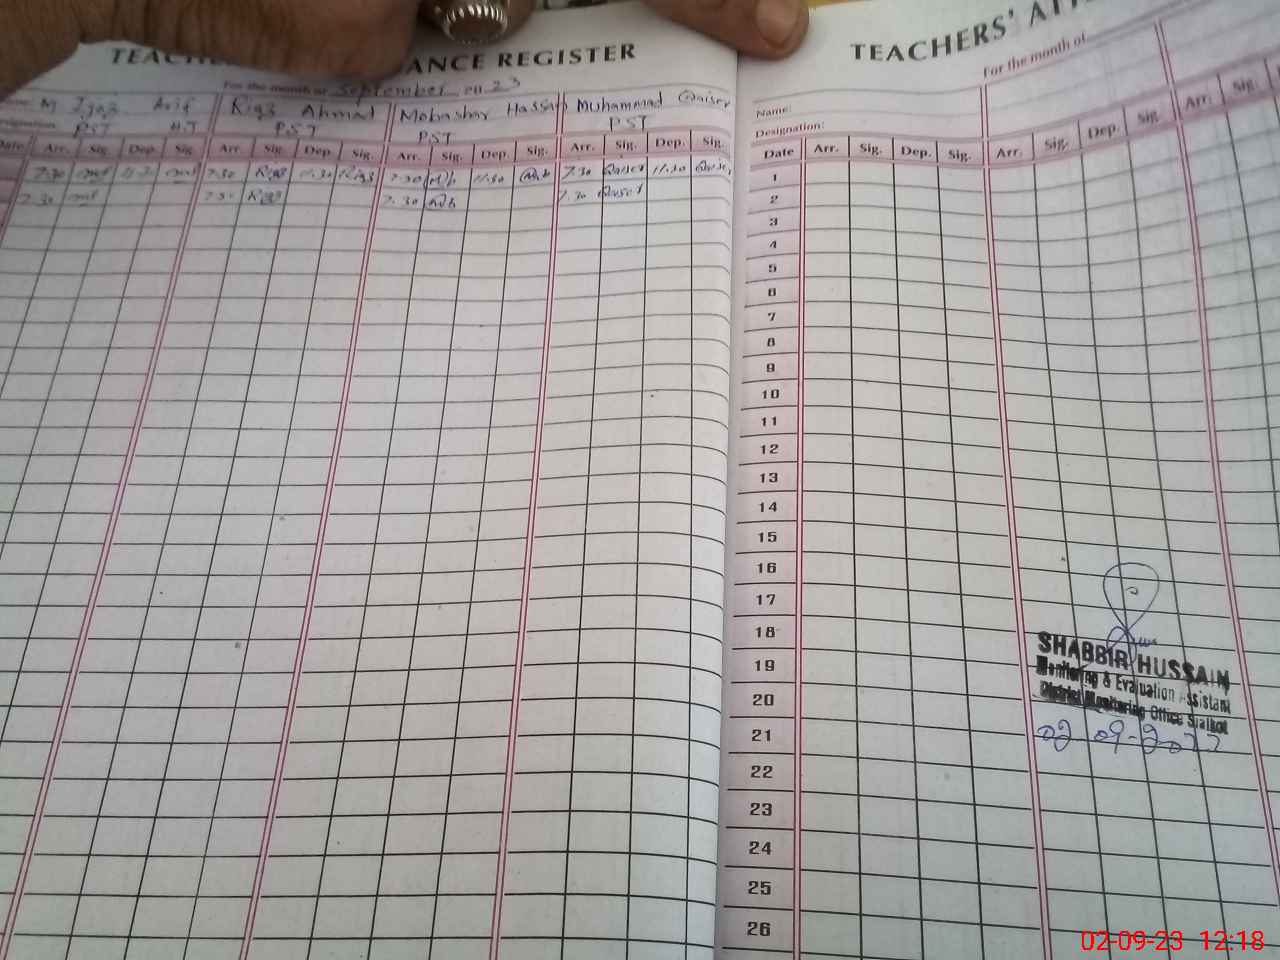 ANCE REGISTER
For the month of September 2023
M Ijaz Arif Riaz Ahmad Mobashar Hassan Muhammad Qaiser
PST H.T PST PST PST
Date Arr. Sig. Dep. Sig. Arr. Sig. Dep. Sig. Arr. Sig. Dep. Sig. Arr. Sig. Dep. Sig.
7.30 11.30 7.30 Riaz 11.30 Riaz 7.30 11.30 7.30 Qaiser 11.30 Qaiser
7.30 7.30 Riaz 7.30 7.30 Qaiser
TEACHERS' ATT
For the month of
Name:
Designation:
Date Arr. Sig. Dep. Sig. Arr. Sig. Dep. Sig. Arr. Sig.
1
2
3
4
5
6
7
8
9
10
11
12
13
14
15
16
17
18
19
20
21
22
23
24
25
26
SHABBIR HUSSAIN
Monitoring & Evaluation Assistant
District Monitoring Office Sialkot
02-09-23 12:18